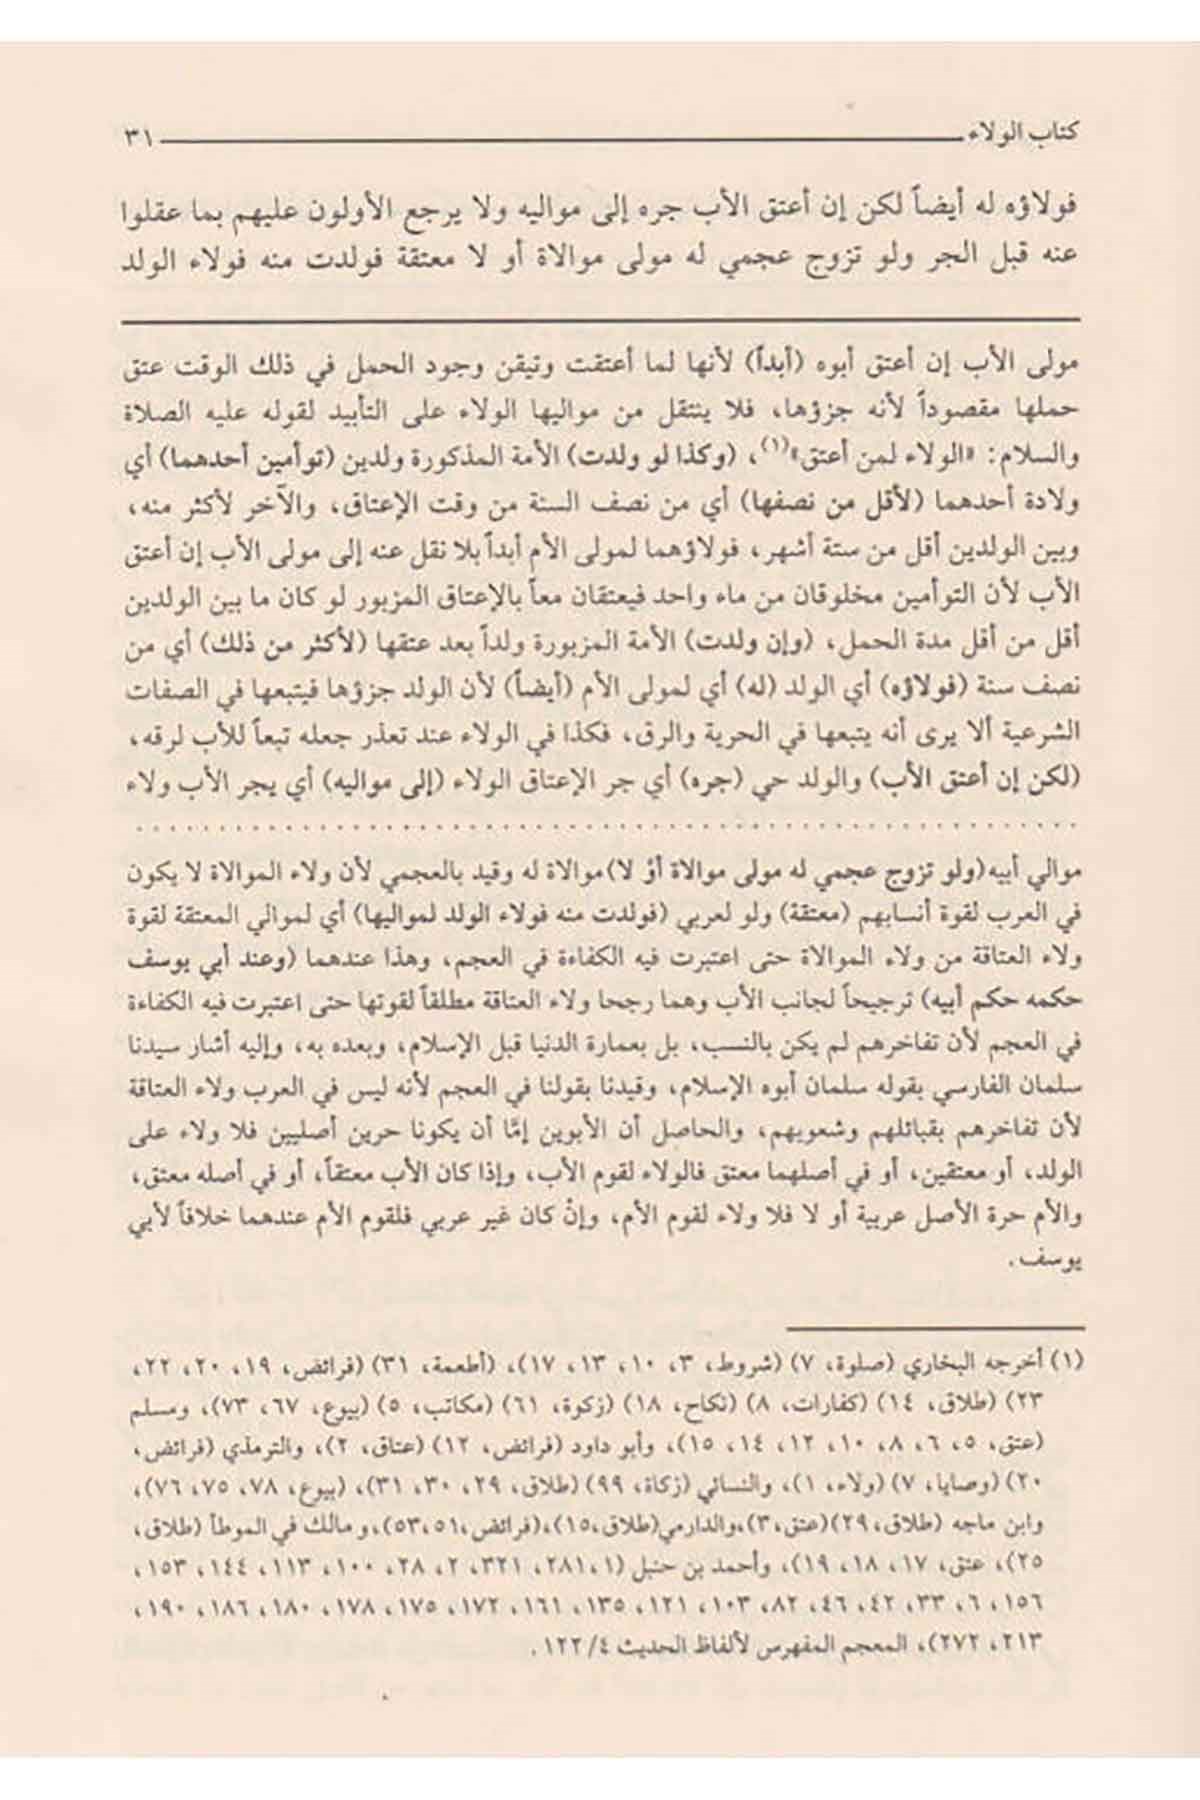 كتاب الولاء ٣١
فولاؤه له أيضاً لكن إن أعتق الأب جره إلى مواليه ولا يرجع الأولون عليهم بما عقلوا
عنه قبل الجر ولو تزوج عجمي له مولى موالاة أو لا معتقة فولدت منه فولاء الولد
مولى الأب إن أعتق أبوه (أبداً) لأنها لما أعتقت وتيقن وجود الحمل في ذلك الوقت عتق
حملها مقصوداً لأنه جزؤها، فلا ينتقل من مواليها الولاء على التأبيد لقوله عليه الصلاة
والسلام: «الولاء لمن أعتق»(١)، (وكذا لو ولدت) الأمة المذكورة ولدين (توأمين أحدهما) أي
ولادة أحدهما (لأقل من نصفها) أي من نصف السنة من وقت الإعتاق، والآخر لأكثر منه،
وبين الولدين أقل من ستة أشهر، فولاؤهما لمولى الأم أبداً بلا نقل عنه إلى مولى الأب إن أعتق
الأب لأن التوأمين مخلوقان من ماء واحد فيعتقان معاً بالإعتاق المزبور لو كان ما بين الولدين
أقل من أقل مدة الحمل، (وإن ولدت) الأمة المزبورة ولداً بعد عتقها (لأكثر من ذلك) أي من
نصف سنة (فولاؤه) أي الولد (له) أي لمولى الأم (أيضاً) لأن الولد جزؤها فيتبعها في الصفات
الشرعية ألا يرى أنه يتبعها في الحرية والرق، فكذا في الولاء عند تعذر جعله تبعاً للأب لرقه،
(لكن إن أعتق الأب) والولد حي (جره) أي جر الإعتاق الولاء (إلى مواليه) أي يجر الأب ولاء
موالي أبيه (ولو تزوج عجمي له مولى موالاة أوْ لا) موالاة له وقيد بالعجمي لأن ولاء الموالاة لا يكون
في العرب لقوة أنسابهم (معتقة) ولو لعربي (فولدت منه فولاء الولد لمواليها) أي لموالي المعتقة لقوة
ولاء العتاقة من ولاء الموالاة حتى اعتبرت فيه الكفاءة في العجم، وهذا عندهما (وعند أبي يوسف
حكمه حكم أبيه) ترجيحاً لجانب الأب وهما رجحا ولاء العتاقة مطلقاً لقوتها حتى اعتبرت فيه الكفاءة
في العجم لأن تفاخرهم لم يكن بالنسب، بل بعمارة الدنيا قبل الإسلام، وبعده به، وإليه أشار سيدنا
سلمان الفارسي بقوله سلمان أبوه الإسلام، وقيدنا بقولنا في العجم لأنه ليس في العرب ولاء العتاقة
لأن تفاخرهم بقبائلهم وشعوبهم، والحاصل أن الأبوين إمَّا أن يكونا حرين أصليين فلا ولاء على
الولد، أو معتقين، أو في أصلهما معتق فالولاء لقوم الأب، وإذا كان الأب معتقاً، أو في أصله معتق،
والأم حرة الأصل عربية أو لا فلا ولاء لقوم الأم، وإنْ كان غير عربي فلقوم الأم عندهما خلافاً لأبي
يوسف.
(١) أخرجه البخاري (صلوة، ٧) (شروط، ٣، ١٠، ١٣، ١٧)، (أطعمة، ٣١) (فرائض، ١٩، ٢٠، ٢٢،
٢٣) (طلاق، ١٤) (كفارات، ٨) (نكاح، ١٨) (زكوة، ٦١) (مكاتب، ٥) (بيوع، ٦٧، ٧٣)، ومسلم
(عتق، ٥، ٦، ٨، ١٠، ١٢، ١٤، ١٥)، وأبو داود (فرائض، ١٢) (عتاق، ٢)، والترمذي (فرائض،
٢٠) (وصايا، ٧) (ولاء، ١)، والنسائي (زكاة، ٩٩) (طلاق، ٢٩، ٣٠، ٣١)، (بيوع، ٧٨، ٧٥، ٧٦)،
وابن ماجه (طلاق، ٢٩) (عتق، ٣)، والدارمي (طلاق، ١٥)، (فرائض، ٥١، ٥٣)، ومالك في الموطأ (طلاق،
٢٥)، عتق، ١٧، ١٨، ١٩)، وأحمد بن حنبل (١، ٢٨١، ٣٢١، ٢، ٢٨، ١٠٠، ١١٣، ١٤٤، ١٥٣،
١٥٦، ٦، ٣٣، ٤٢، ٤٦، ٨٢، ١٠٣، ١٢١، ١٣٥، ١٦١، ١٧٢، ١٧٥، ١٧٨، ١٨٠، ١٨٦، ١٩٠،
٢١٣، ٢٧٢)، المعجم المفهرس لألفاظ الحديث ١٢٢/٤.